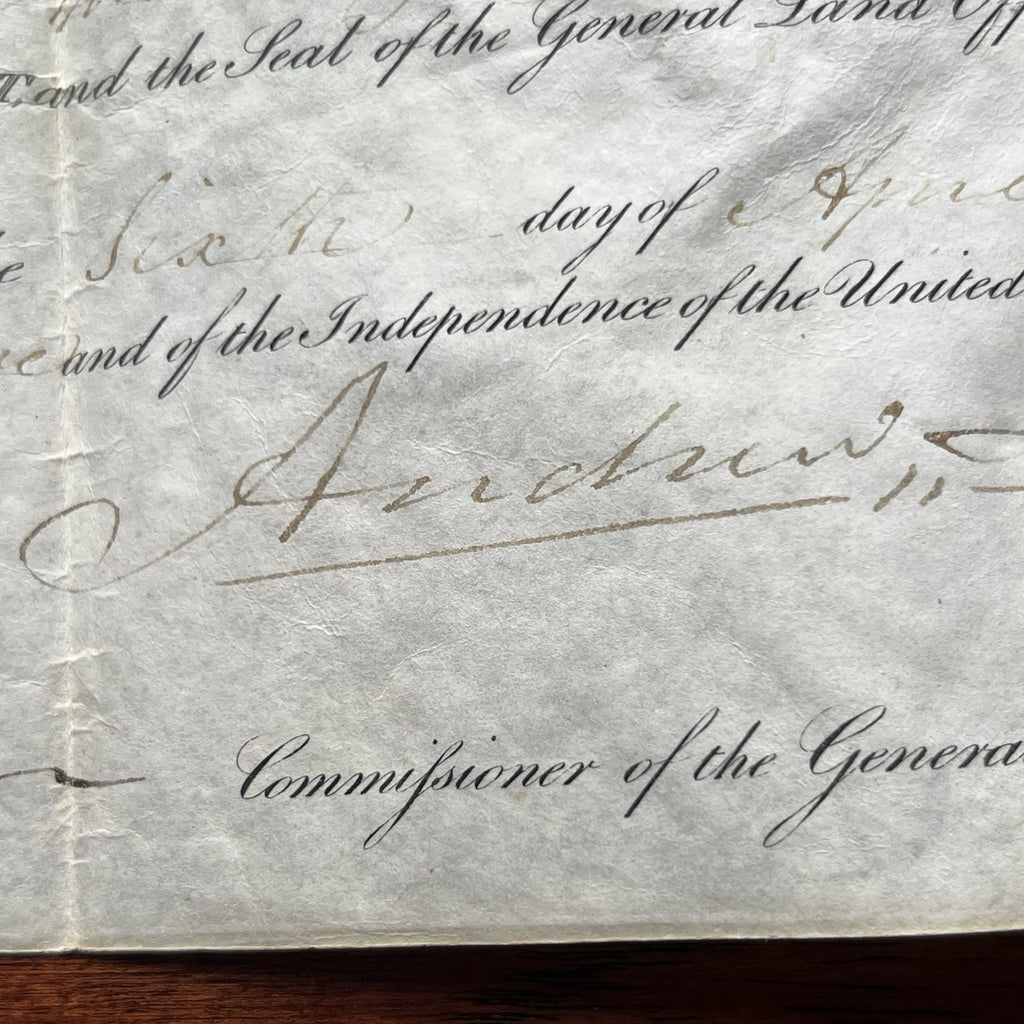 and the Seal of the General Land Off
e Sixth day of April
and of the Independence of the United
Andrew
Commissioner of the General